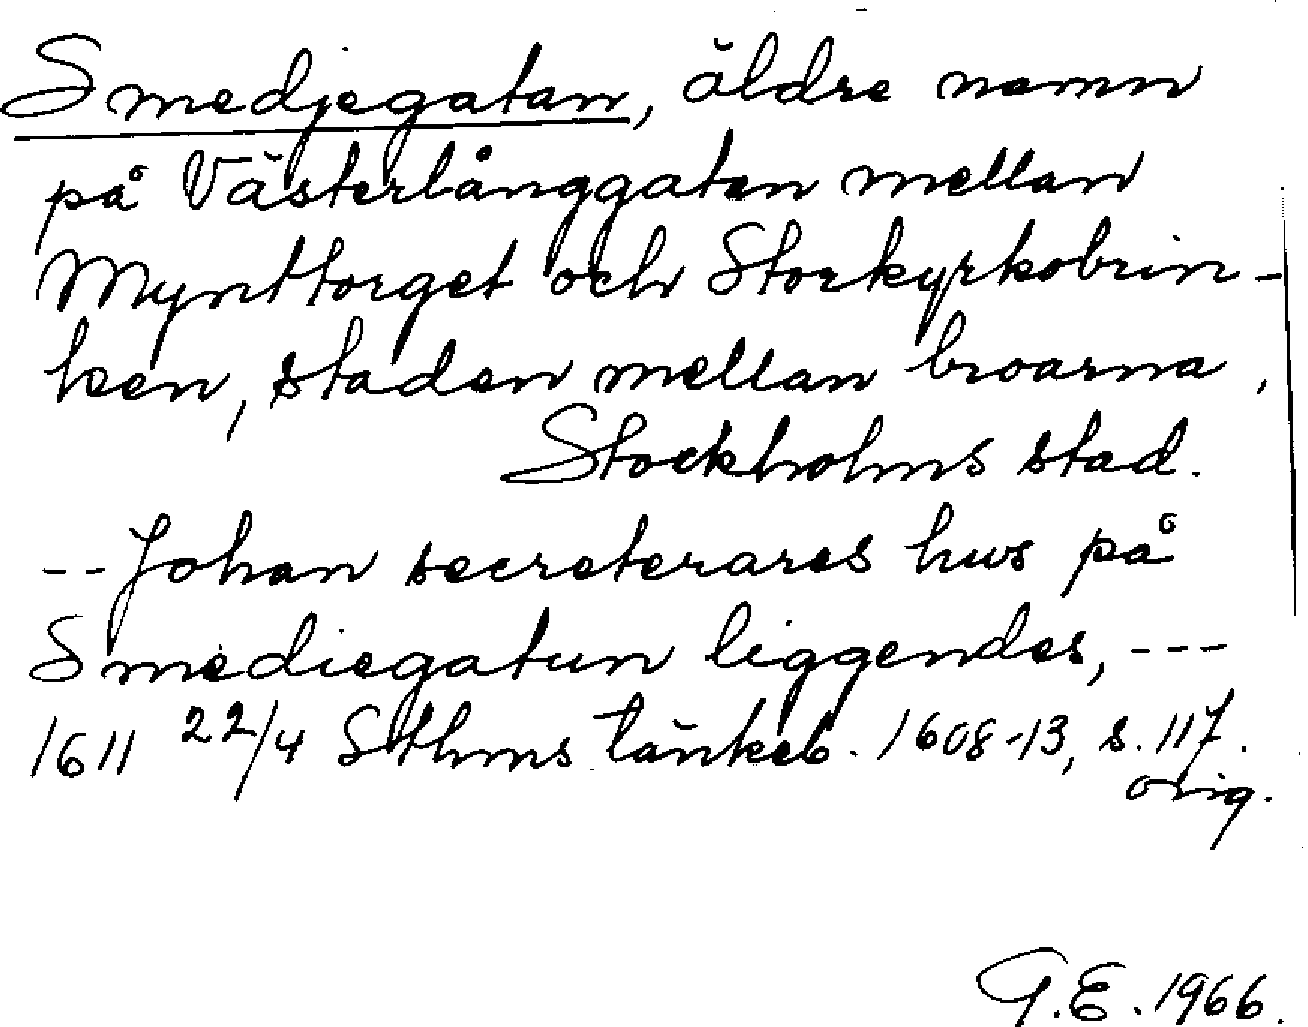 Smedjegatan, äldre namn
på Västerlånggatan mellan
Mynttorget och Storkyrkobrin-
ken, staden mellan broarna,
Stockholms stad.
-- Johan secreterares hws på
Smediegatun liggendes, ---
1611 22/4 Sthms tänkeb. 1608-13, s. 117.
orig.
G.E. 1966.